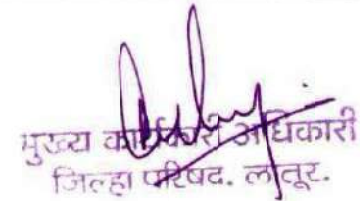 मुख्य कार्यकारी अधिकारी
जिल्हा परिषद. लातूर.